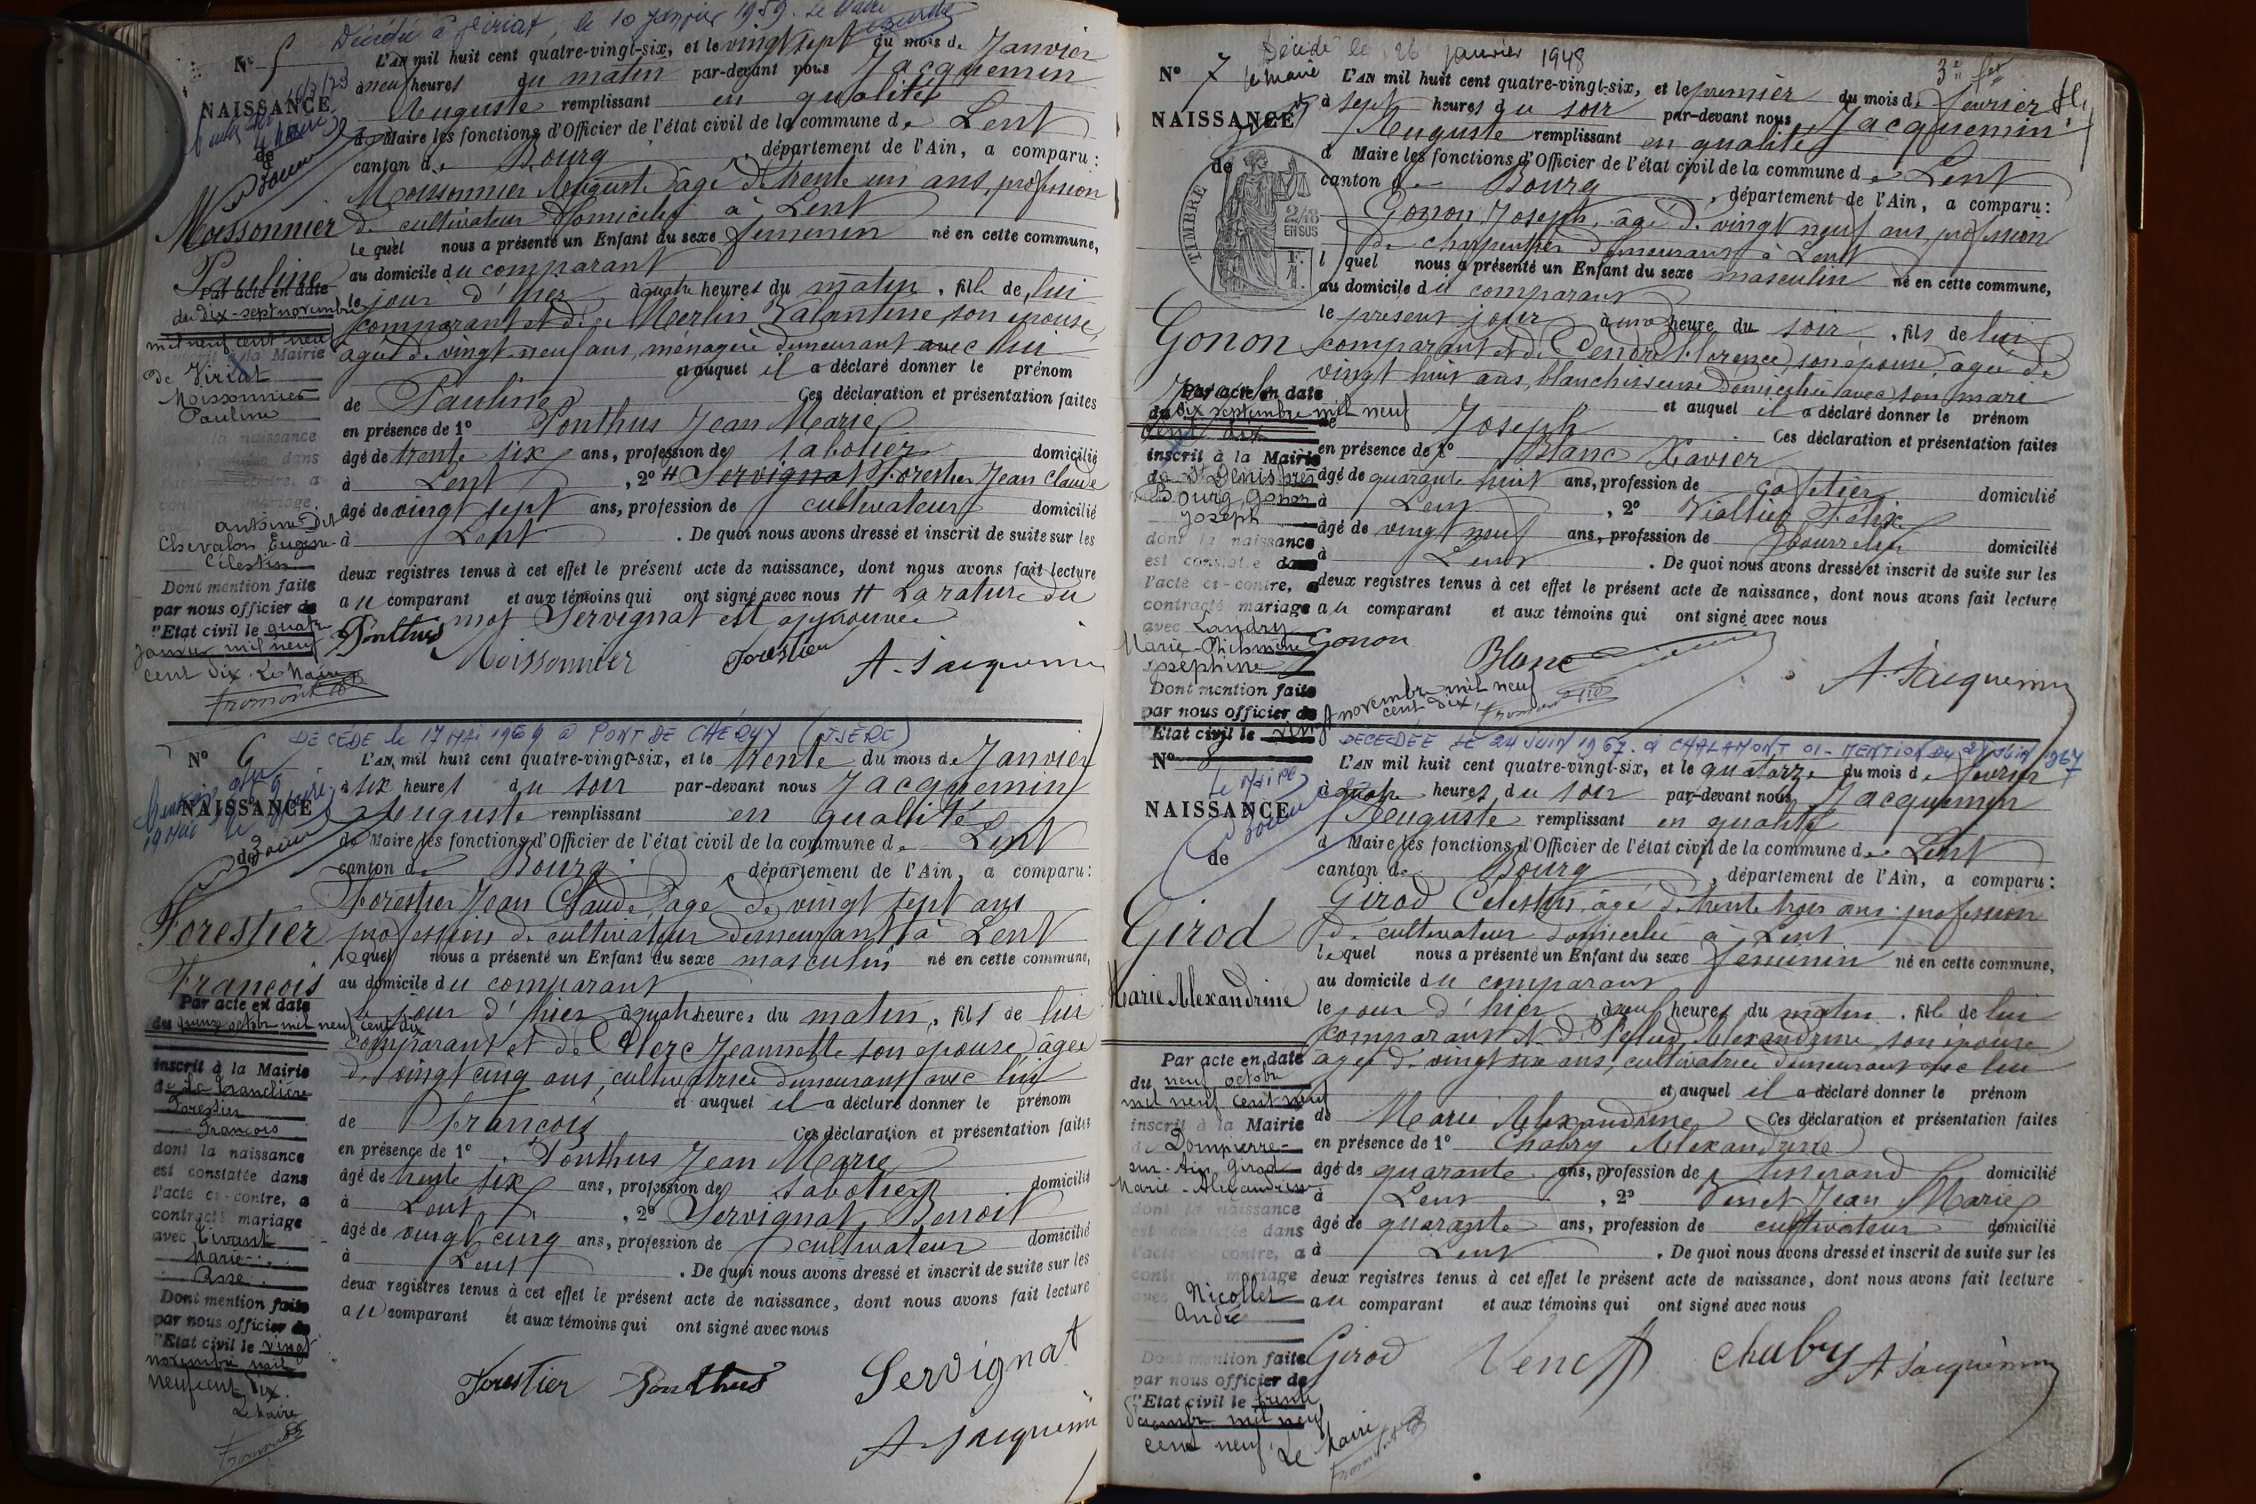 Décédée à Viriat, le 10 janvier 1959. Le Maire
N° 5
L'AN mil huit cent quatre-vingt-six, et le vingt sept du mois de Janvier
à neuf heures du matin par-devant nous Jacquemin
NAISSANCE
Auguste remplissant en qualité
de Maire les fonctions d'Officier de l'état civil de la commune de Lent
de
canton de Bourg, département de l'Ain, a comparu:
Moissonnier Auguste âgé de trente un ans, profession
Moissonnier
de cultivateur domicilié à Lent
lequel nous a présenté un Enfant du sexe féminin né en cette commune,
Pauline
au domicile du comparant
le jour d'hier à quatre heures du matin, fille de lui
comparant et de Merlin Valantine son épouse,
âgée de vingt-neuf ans, ménagère demeurant avec lui
et auquel il a déclaré donner le prénom
de Pauline Ces déclaration et présentation faites
en présence de 1° Ponthus Jean Marie
âgé de trente six ans, profession de sabotier domicilié
à Lent, 2° # Servignat Forestier Jean Claude
âgé de vingt sept ans, profession de cultivateur domicilié
à Lent. De quoi nous avons dressé et inscrit de suite sur les
deux registres tenus à cet effet le présent acte de naissance, dont nous avons fait lecture
au comparant et aux témoins qui ont signé avec nous # La rature du
mot Servignat est approuvée
Ponthus Moissonnier Forestier A. Jacquemin
Par acte en date
du dix-sept novembre
mil neuf cent neuf
inscrit à la Mairie
de Viriat
Moissonnier
Pauline
la naissance
dans
contre, a
mariage
avec
Antoine Dit
Chevalon Eugène
Célestin
Dont mention faite
par nous officier de
l'Etat civil le quatre
janvier mil neuf
cent dix. Le Maire
Fromont
DÉCÉDÉ le 17 MAI 1969 à PONT DE CHÉRUY (ISÈRE)
N° 6
L'AN mil huit cent quatre-vingt-six, et le trente du mois de Janvier
à six heures du soir par-devant nous Jacquemin
NAISSANCE
Auguste remplissant en qualité
de Maire les fonctions d'Officier de l'état civil de la commune de Lent
de
canton de Bourg département de l'Ain, a comparu:
Forestier Jean Claude âgé de vingt sept ans
Forestier
profession de cultivateur demeurant à Lent
lequel nous a présenté un Enfant du sexe masculin né en cette commune,
François
au domicile du comparant
le jour d'hier à quatre heures du matin, fils de lui
comparant et de Clerc Jeannette son épouse âgée
de vingt cinq ans, cultivatrice demeurant avec lui
et auquel il a déclaré donner le prénom
de François Ces déclaration et présentation faites
en présence de 1° Ponthus Jean Marie
âgé de trente six ans, profession de sabotier domicilié
à Lent, 2° Servignat Benoit
âgé de vingt cinq ans, profession de cultivateur domicilié
à Lent. De quoi nous avons dressé et inscrit de suite sur les
deux registres tenus à cet effet le présent acte de naissance, dont nous avons fait lecture
au comparant et aux témoins qui ont signé avec nous
Forestier Ponthus Servignat
A. Jacquemin
Par acte en date
du quinze octobre mil neuf cent dix
inscrit à la Mairie
de la Tranclière
Forestier
François
dont la naissance
est constatée dans
l'acte ci-contre, a
contracté mariage
avec Tivant
Marie
Dont mention faite
par nous officier de
l'Etat civil le vingt
novembre mil
neuf cent dix.
Le Maire
Fromont
Décédé le 26 janvier 1948
le Maire
N° 7
L'AN mil huit cent quatre-vingt-six, et le premier du mois de février
à sept heures du soir par-devant nous Jacquemin
NAISSANCE
Auguste remplissant en qualité
de Maire les fonctions d'Officier de l'état civil de la commune de Lent
de
TIMBRE
2/48
EN SUS
canton de Bourg, département de l'Ain, a comparu:
Gonon Joseph, âgé de vingt neuf ans, profession
de charpentier demeurant à Lent
lequel nous a présenté un Enfant du sexe masculin né en cette commune,
au domicile du comparant
le présent jour à une heure du soir, fils de lui
Gonon
comparant et de Cendre Florence, son épouse, âgée de
vingt huit ans, blanchisseuse domiciliée avec son mari
Joseph
et auquel il a déclaré donner le prénom
de Joseph Ces déclaration et présentation faites
en présence de 1° Blanc Xavier
âgé de quarante huit ans, profession de cafetier domicilié
à Lent, 2° Viallier Félix
âgé de vingt neuf ans, profession de bourrelier domicilié
à Lent. De quoi nous avons dressé et inscrit de suite sur les
deux registres tenus à cet effet le présent acte de naissance, dont nous avons fait lecture
au comparant et aux témoins qui ont signé avec nous
Gonon Blanc A. Jacquemin
Par acte en date
du dix septembre mil neuf
cent dix
inscrit à la Mairie
de St Denis près
Bourg Gonon
Joseph
dont la naissance
est constatée dans
l'acte ci-contre, a
contracté mariage
avec Landry
Marie-Philomène
Joséphine
Dont mention faite
par nous officier de
l'Etat civil le vingt novembre mil neuf
cent dix,
DÉCÉDÉE LE 24 JUIN 1967 à CHALAMONT 01 - MENTION DU 27 JUIN 1967
Le Maire
N° 8
L'AN mil huit cent quatre-vingt-six, et le quatorze du mois de février
à quatre heures du soir par-devant nous Jacquemin
NAISSANCE
Auguste remplissant en qualité
de Maire les fonctions d'Officier de l'état civil de la commune de Lent
de
canton de Bourg, département de l'Ain, a comparu:
Girod Célestin, âgé de trente trois ans, profession
Girod
de cultivateur domicilié à Lent
lequel nous a présenté un Enfant du sexe féminin né en cette commune,
au domicile du comparant
Marie Alexandrine
le jour d'hier à neuf heures du matin, fille de lui
comparant et de Alexandrine, son épouse
âgée de vingt six ans, cultivatrice demeurant avec lui
et auquel il a déclaré donner le prénom
de Marie Alexandrine Ces déclaration et présentation faites
en présence de 1° Chabry Alexandre
âgé de quarante ans, profession de tisserand domicilié
à Lent, 2° Venet Jean Marie
âgé de quarante ans, profession de cultivateur domicilié
à Lent. De quoi nous avons dressé et inscrit de suite sur les
deux registres tenus à cet effet le présent acte de naissance, dont nous avons fait lecture
au comparant et aux témoins qui ont signé avec nous
Girod Venet Chabry A. Jacquemin
Par acte en date
du neuf octobre
mil neuf cent neuf
inscrit à la Mairie
de Dompierre-
sur-Ain Girod
Marie-Alexandrine
dont la naissance
est constatée dans
l'acte ci-contre, a
contracté mariage
avec Nicollet
André
Dont mention faite
par nous officier de
l'Etat civil le trente
décembre mil neuf
cent neuf. Le Maire
Fromont